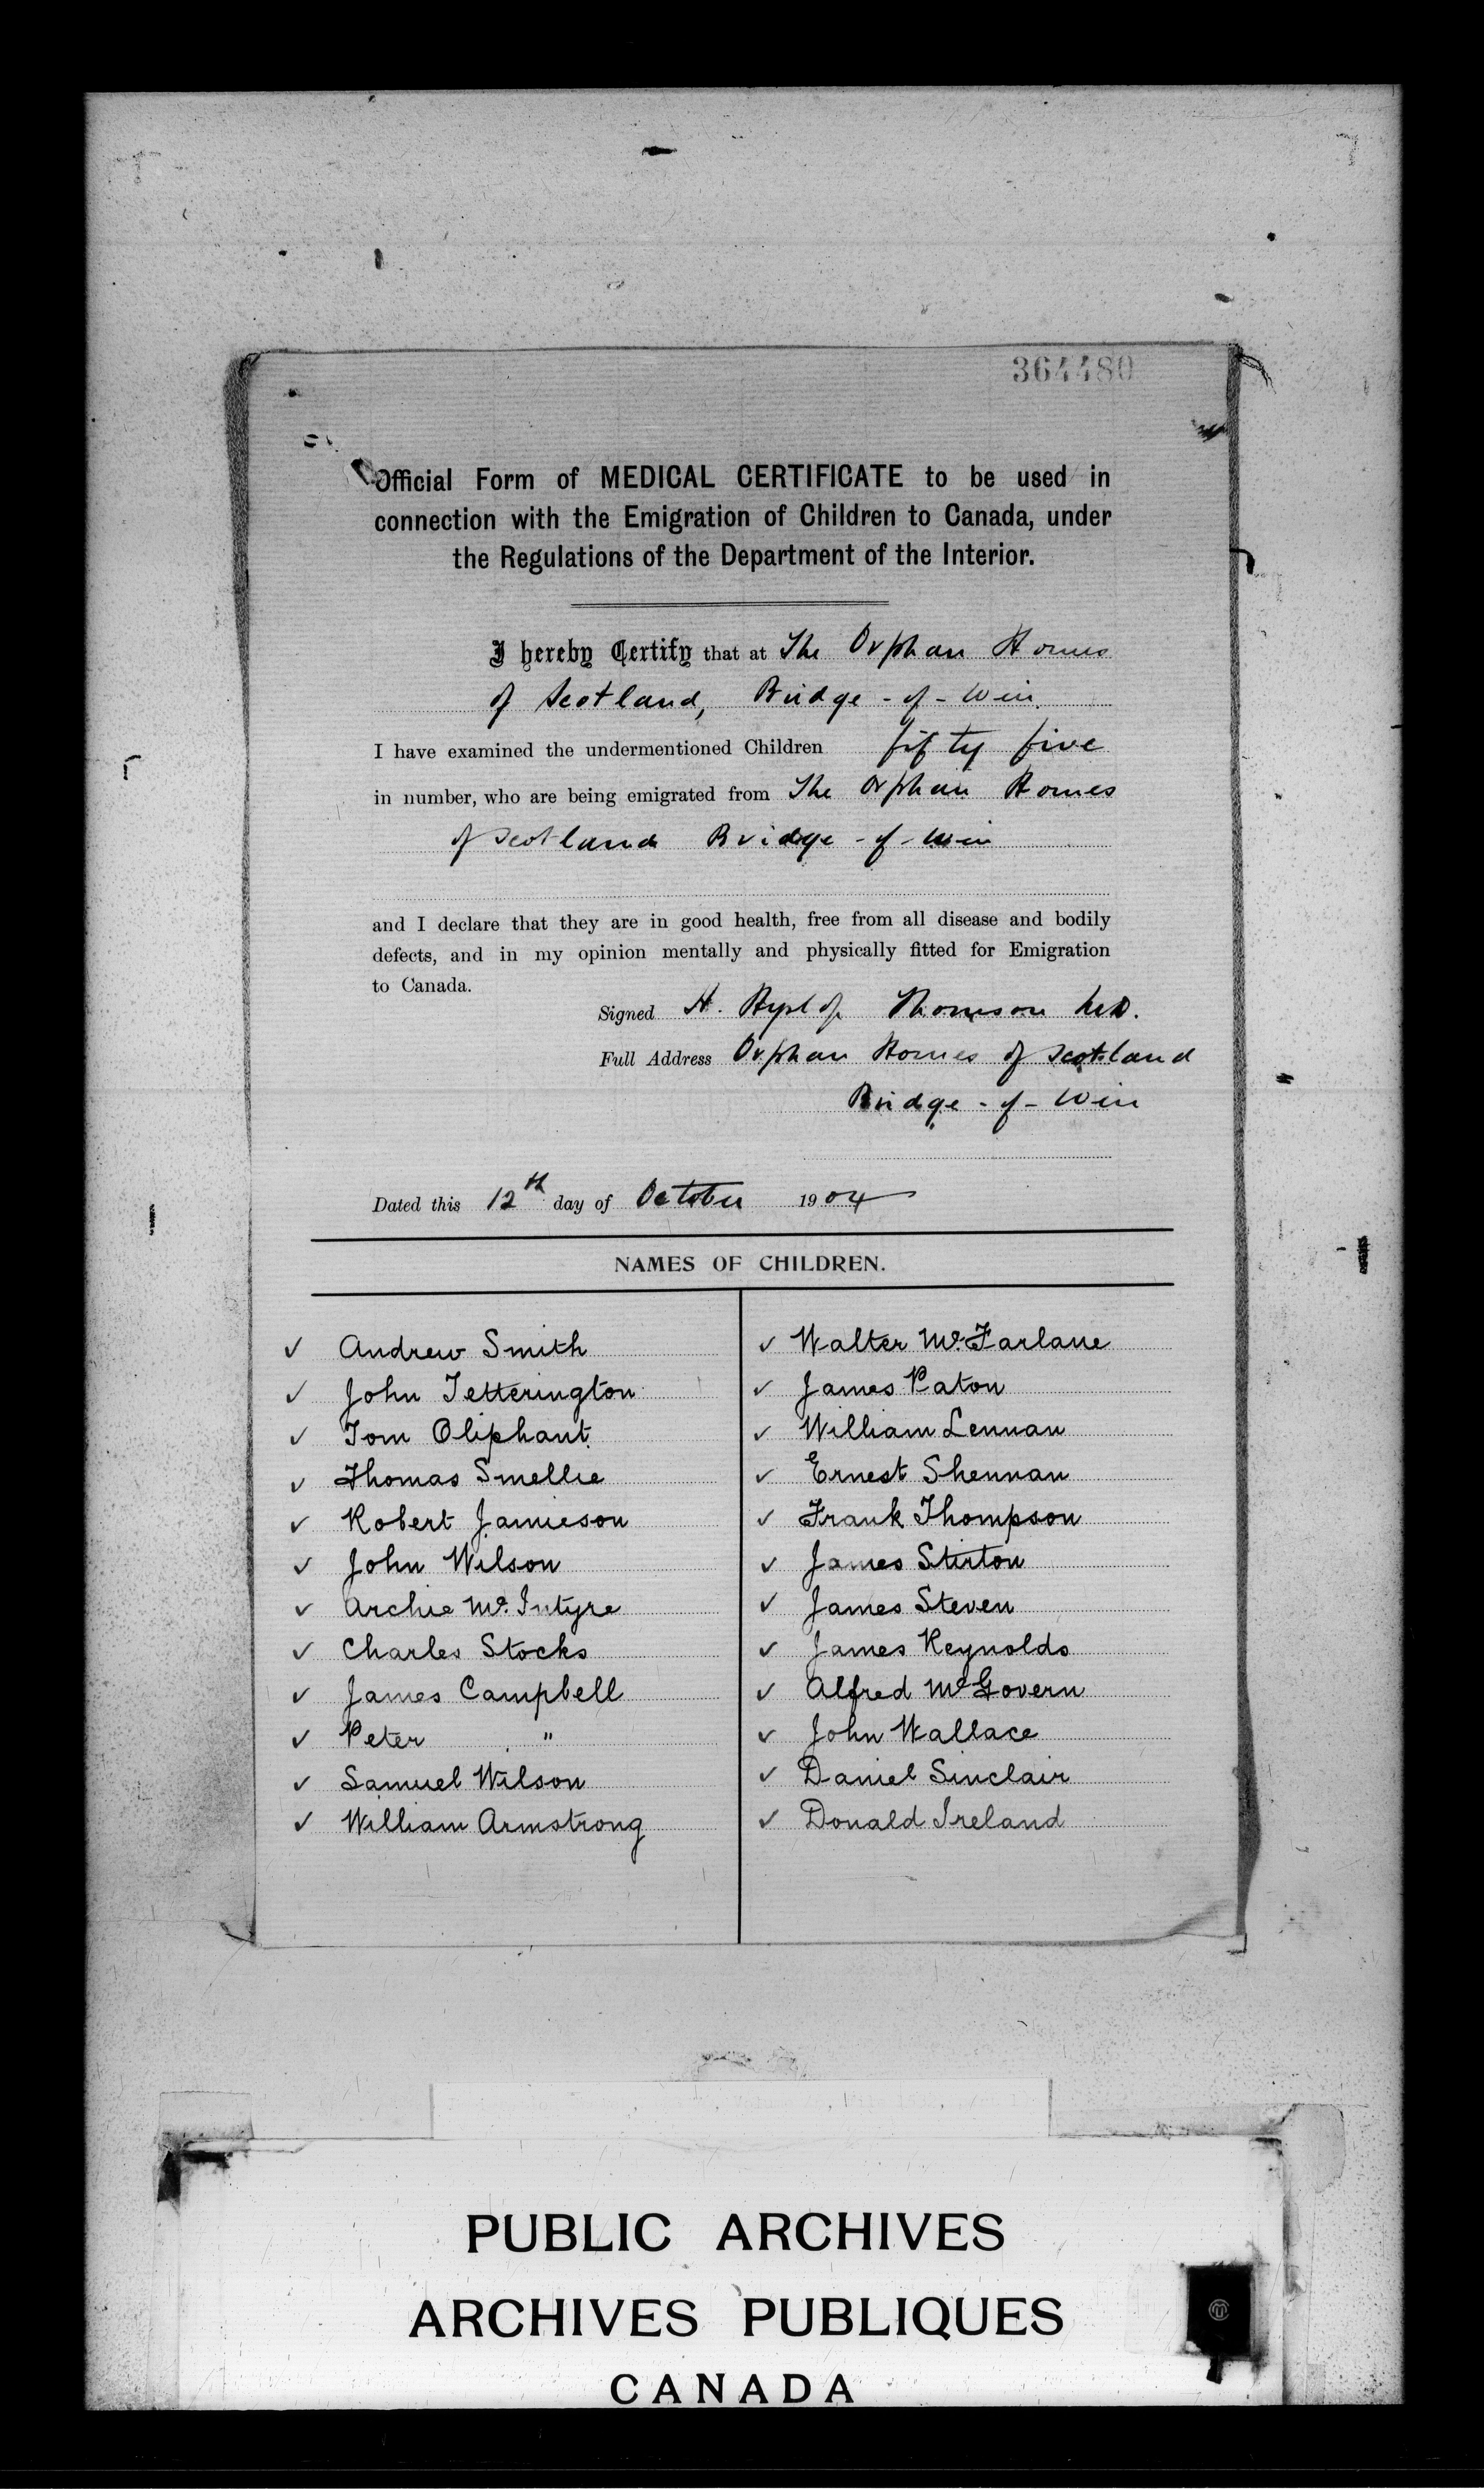 364480
Official Form of MEDICAL CERTIFICATE to be used in
connection with the Emigration of Children to Canada, under
the Regulations of the Department of the Interior.
I hereby Certify that at The Orphan Homes
of Scotland, Bridge-of-Weir.
I have examined the undermentioned Children fifty five
in number, who are being emigrated from The Orphan Homes
of Scotland Bridge-of-Weir
and I declare that they are in good health, free from all disease and bodily
defects, and in my opinion mentally and physically fitted for Emigration
to Canada.
Signed H. Hyslop Thomson M.D.
Full Address Orphan Homes of Scotland
Bridge-of-Weir
Dated this 12th day of October 1904
NAMES OF CHILDREN.
✓ Andrew Smith
✓ John Tetterington
✓ Tom Oliphant
✓ Thomas Smellie
✓ Robert Jamieson
✓ John Wilson
✓ Archie Mc.Intyre
✓ Charles Stocks
✓ James Campbell
✓ Peter "
✓ Samuel Wilson
✓ William Armstrong
✓ Walter Mc.Farlane
✓ James Paton
✓ William Lennan
✓ Ernest Shennan
✓ Frank Thompson
✓ James Stirton
✓ James Steven
✓ James Reynolds
✓ Alfred McGovern
✓ John Wallace
✓ Daniel Sinclair
✓ Donald Ireland
PUBLIC ARCHIVES
ARCHIVES PUBLIQUES
CANADA